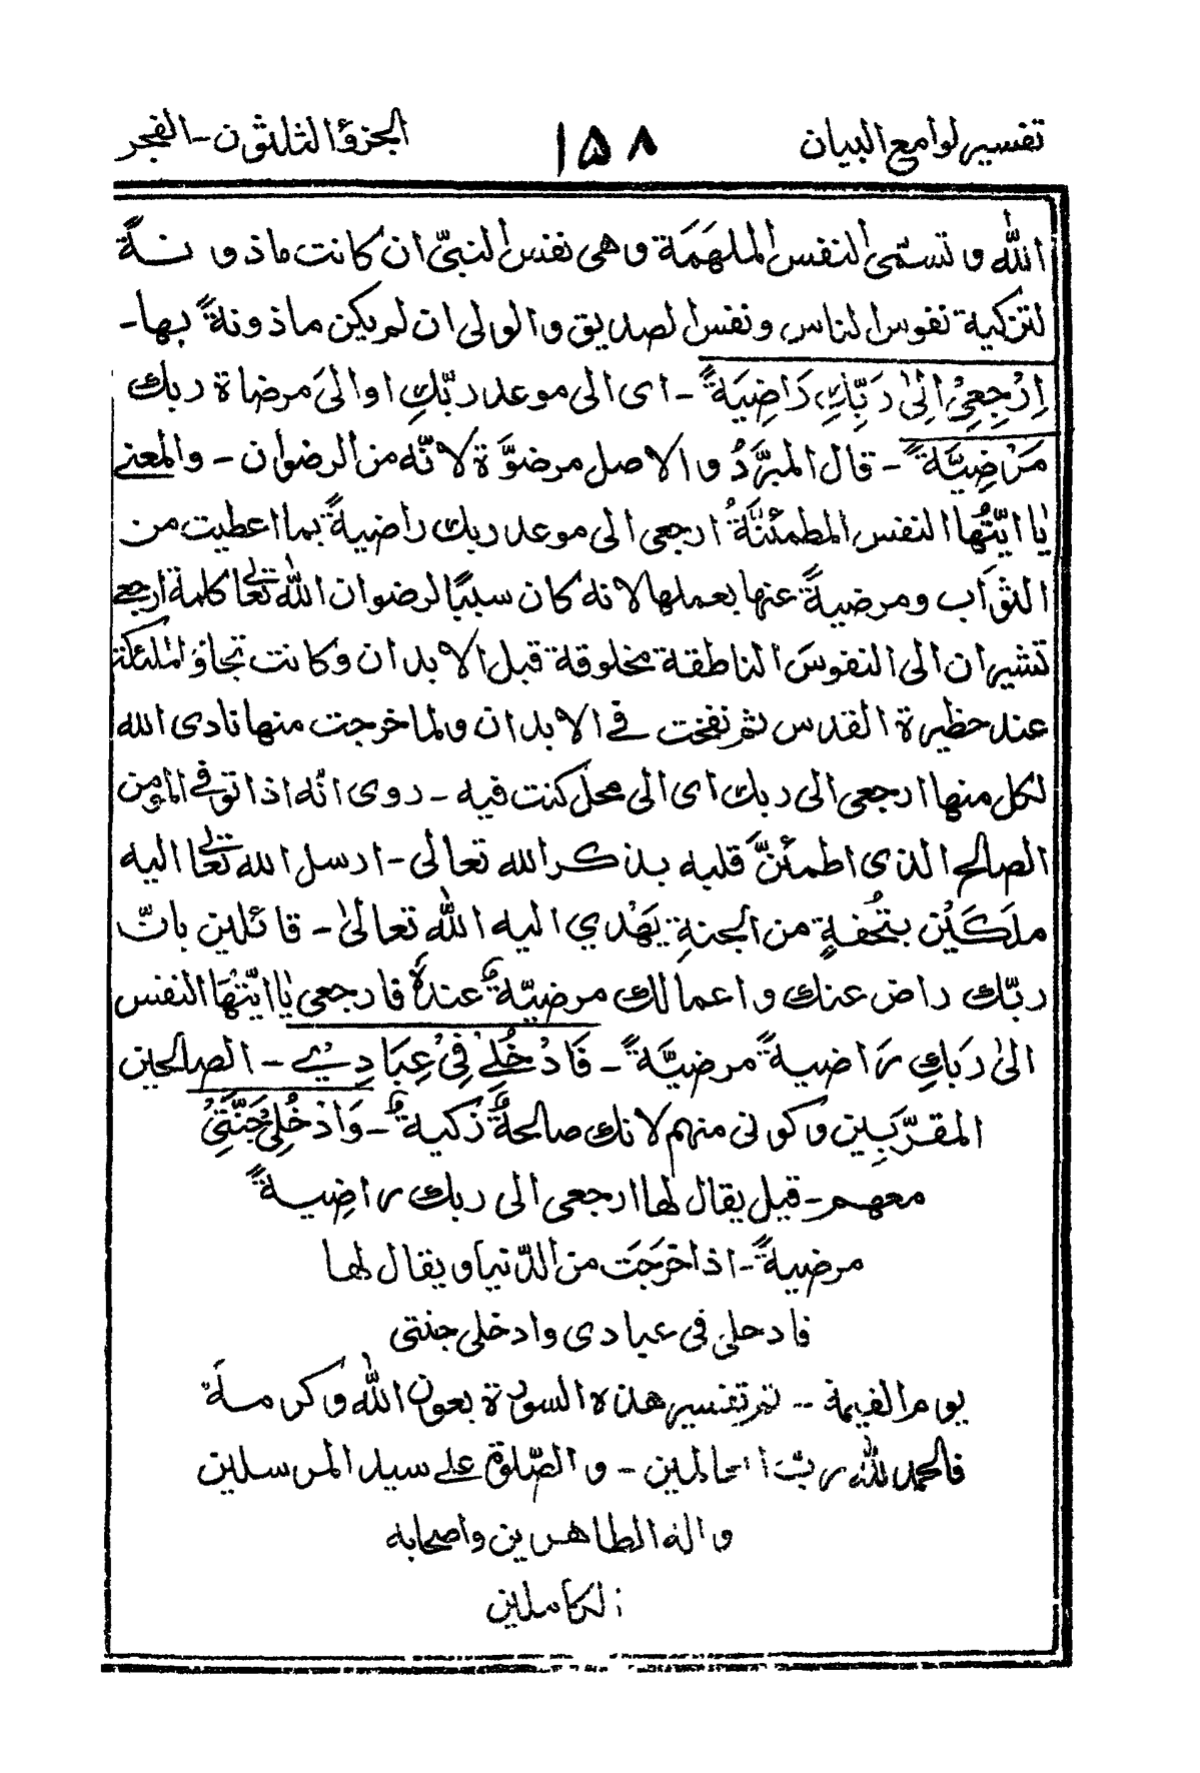 تفسير لوامع البيان ١٥٨ الجزؤ الثلثون - الفجر
الله و تسمّى النفس الملهَمَة وهى نفس النبىّ ان كانت ماذونةً
لتزكية نفوس الناس ونفس الصديق والولى ان لم يكن ماذونةً بها -
اِرْجِعِىْ اِلىٰ رَبِّكِ رَاضِيَةً - اى الى موعد ربّكِ او الىَ مرضاة ربك
مَرْضِيَّةً - قال المبرَّدُ و الاصل مرضوَّة لانّه من الرضوان - والمعنے
يٰا ايّتُها النفس المطمئنَّةُ ارجعى الى موعد ربك راضيةً بما اعطيت من
الثوَاب ومرضيةً عنها بعملها لانه كان سببًا لرضوان الله تعالٰى كلمة ارجعے
تشير ان الى النفوسَ الناطقة مخلوقة قبل الابدان وكانت تجاوز الملئكة
عند حظيرة القدس ثم نفخت فے الابدان ولما خرجت منها نادى الله
لكل منها ارجعى الى ربك اى الى محل كنت فيه - روى انّه اذا توفے المؤمن
الصالح الذى اطمئنَّ قلبه بذكر الله تعالى - ارسل الله تعالٰى اليه
ملَكَيْن بتُحفةٍ من الجنةِ يَهْدي اليه الله تعالىٰ - قائلين بانّ
ربّك راض عنك واعمالك مرضيّةٌ عندهٗ فارجعى يٰا ايّتهَا النفس
الىٰ رَبكِ راضيةً مرضيَّةً - فَادْخُلِےْ فِىْ عِبَادِیْ - الصالحين
المقرَّبِين وكونى منهم لانك صالحةٌ زكيةٌ - وَادْخُلِىْ جَنَّتِىْ
معهم - قيل يقال لها ارجعى الى ربك راضِيةً
مرضيةً - اذا خرَجَت من الدّنيا ويقال لها
فادخلى فى عبادى وادخلى جنتى
يوم القيمة - تم تفسير هذه السورة بعون الله وكرمه
فالحمد لله ربّ العالمين - والصّلوة علے سيد المرسلين
واله الطاهرين واصحابه
الكاملين